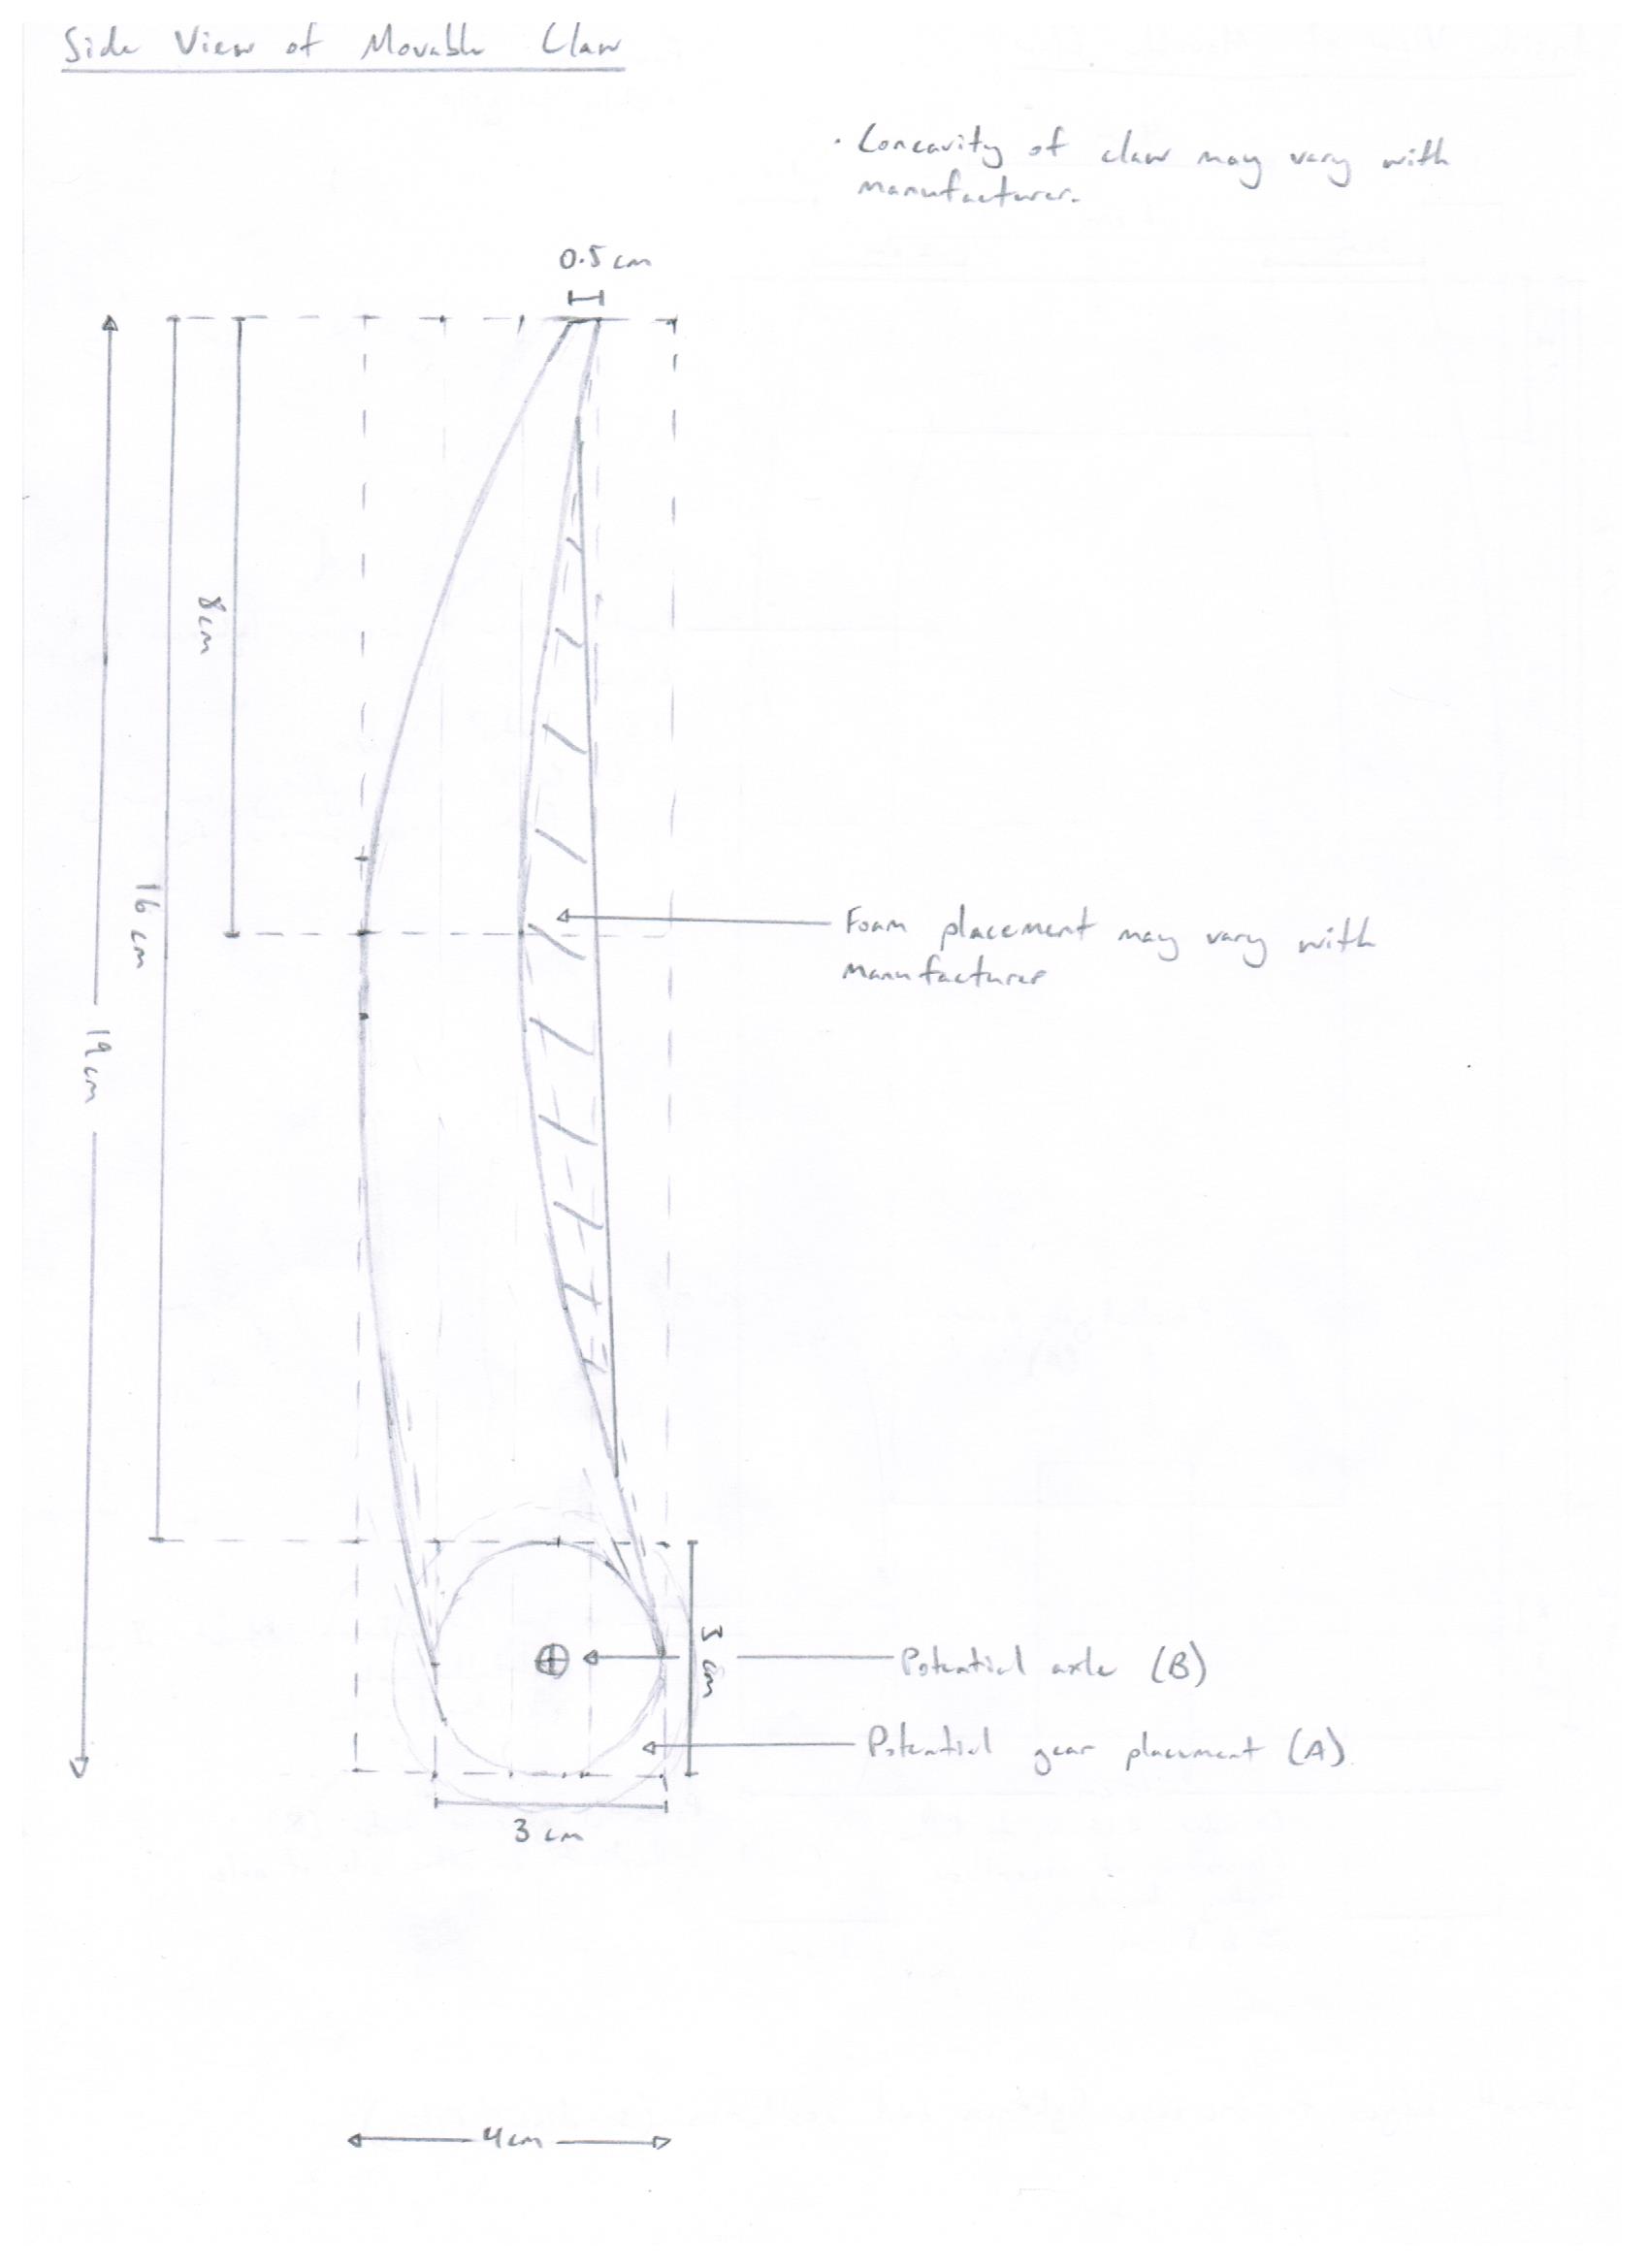 Side View of Movable Claw
· Concavity of claw may vary with
manufacturer.
0.5 cm
8cm
16 cm
19cm
Foam placement may vary with
manufacturer
3 cm
Potential axle (B)
Potential gear placement (A)
3 cm
4cm